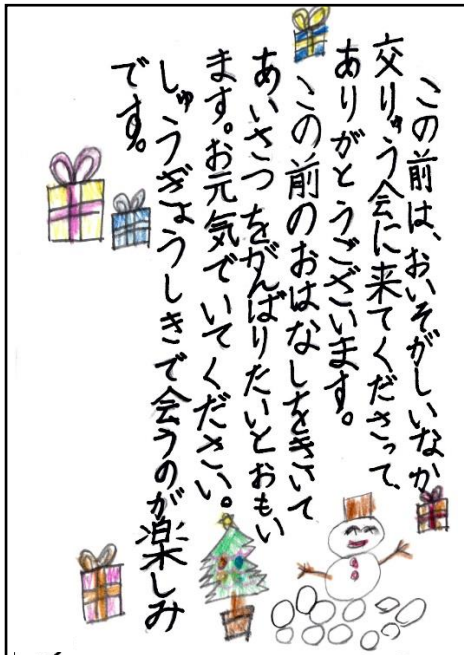 この前は、おいそがしいなか
交りゅう会に来てくださって、
ありがとうございます。
この前のおはなしをきいて
あいさつをがんばりたいとおもい
ます。お元気でいてください。
しゅうぎょうしきで会うのが楽しみ
です。